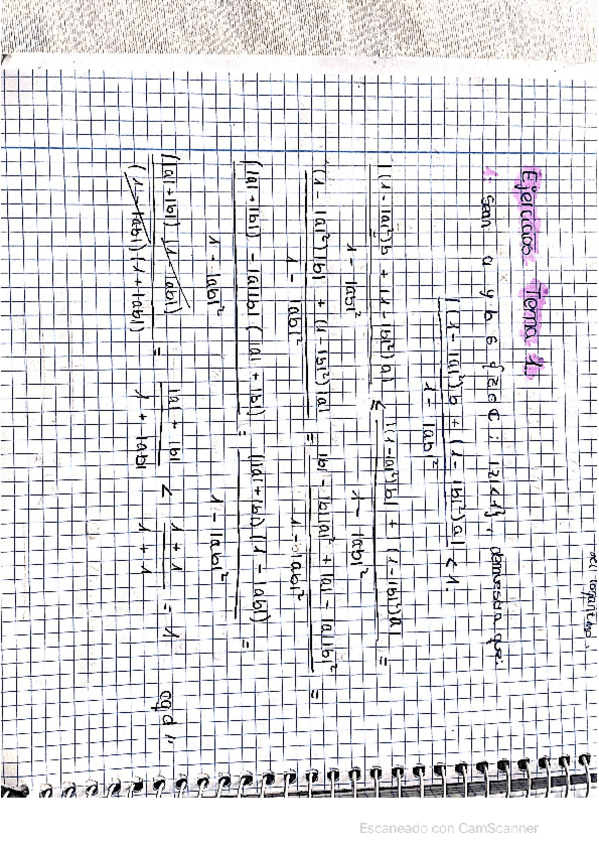 Ejercicios Tema 1.
1. sean a y b ∈ {z ∈ C : |z| < 1}, demuestra que:
|(1 - |a|²)b + (1 - |b|²)a| / 1 - |ab|² < 1.
|(1 - |a|²)b + (1 - |b|²)a| / 1 - |ab|² ≤ |(1 - |a|²)b| + |(1 - |b|²)a| / 1 - |ab|² =
(1 - |a|²)|b| + (1 - |b|²)|a| / 1 - |ab|² = |b| - |b||a|² + |a| - |a||b|² / 1 - |ab|² =
(|a| + |b|) - |a||b| (|a| + |b|) / 1 - |ab|² = (|a| + |b|) (1 - |ab|) / 1 - |ab|² =
(|a| + |b|) (1 - |ab|) / (1 - |ab|) (1 + |ab|) = |a| + |b| / 1 + |ab| < 1 + 1 / 1 + 1 = 1 cqd,,
Escaneado con CamScanner